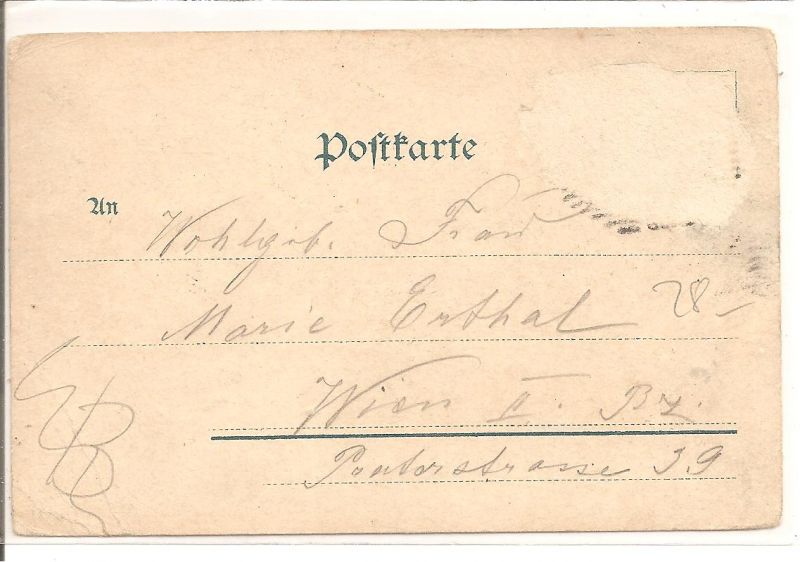 Postkarte
An
Wohlgeb. Frau
Marie Erthal
28-
Wien II. Bz.
Praterstrasse 39